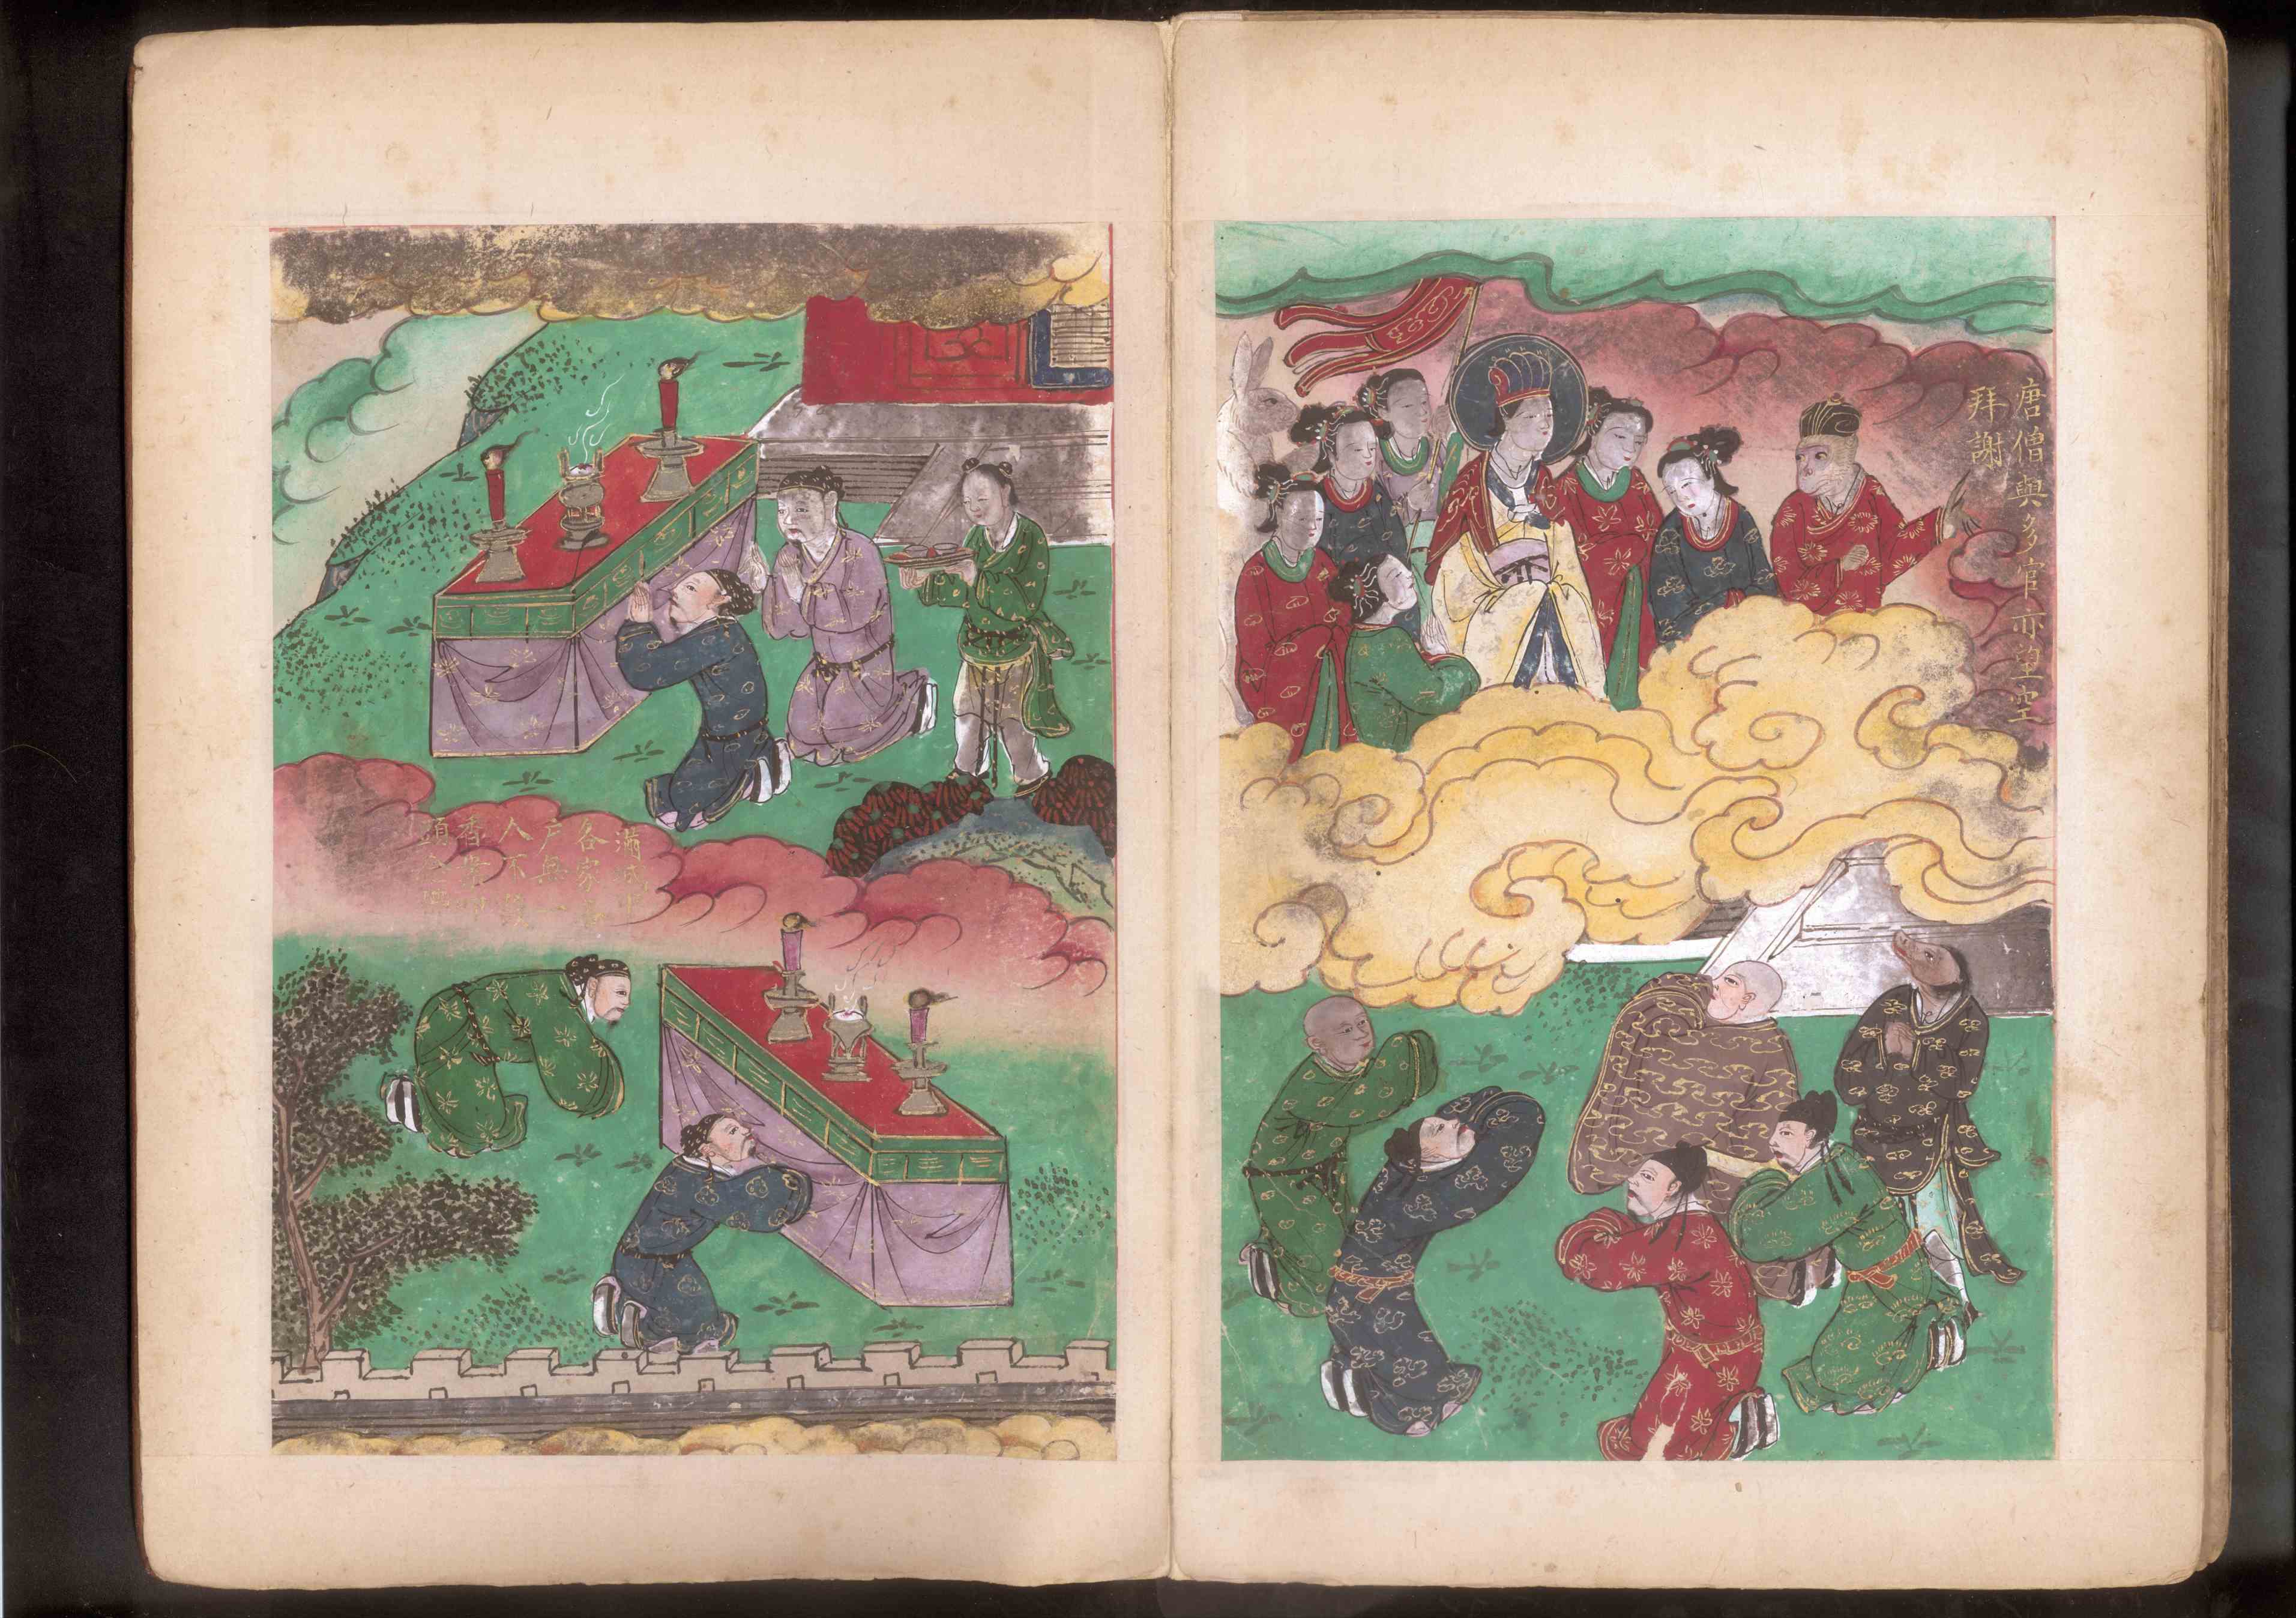 唐僧與多官亦望空
拜謝
滿城中
各家各
户無一
人不設
香案叩
頭念佛